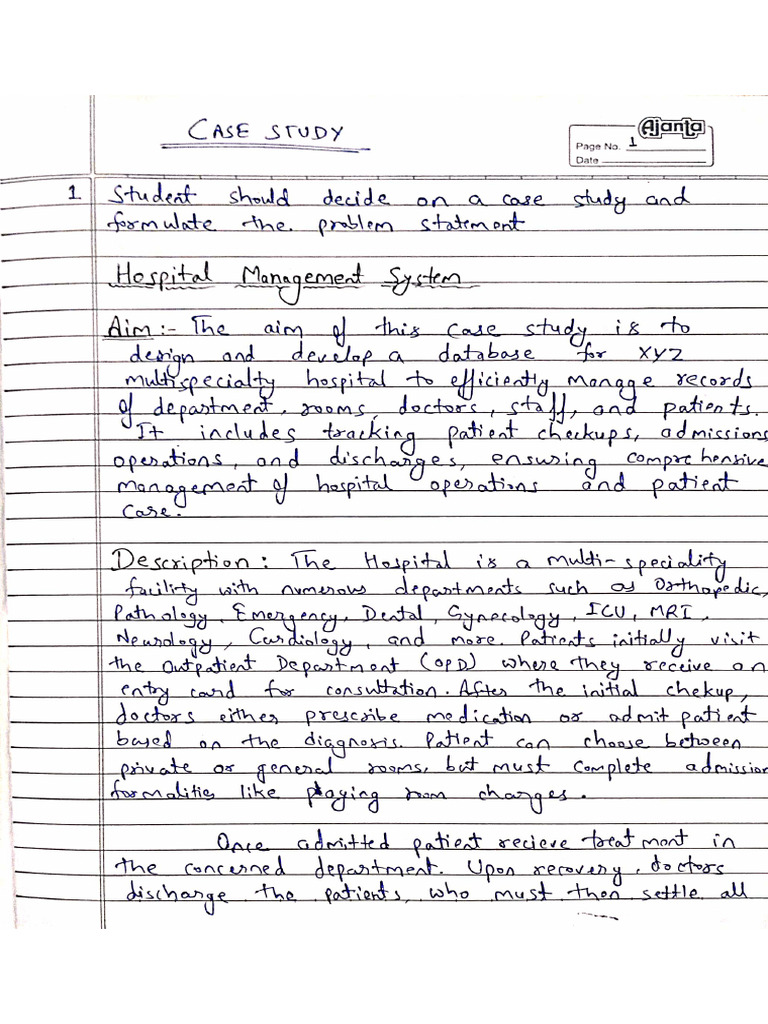 CASE STUDY
Ajanta
Page No. 1
Date
1 Student should decide on a case study and
formulate the problem statement
Hospital Management System
Aim :- The aim of this case study is to
design and develop a database for XYZ
multispecialty hospital to efficiently manage records
of department, rooms, doctors, staff, and patients.
It includes tracking patient checkups, admissions
operations, and discharges, ensuring comprehensive
management of hospital operations and patient
care.
Description : The Hospital is a multi-speciality
facility with numerous departments such as Orthopedic,
Pathology, Emergency, Dental, Gynecology, ICU, MRI,
Neurology, Cardiology, and more. Patients initially visit
the Outpatient Department (OPD) where they receive an
entry card for consultation. After the initial chekup,
doctors either prescribe medication or admit patient
based on the diagnosis. Patient can choose between
private or general rooms, but must complete admission
formalities like playing room charges.
Once admitted patient recieve treatment in
the concerned department. Upon recovery, doctors
discharge the patients, who must then settle all